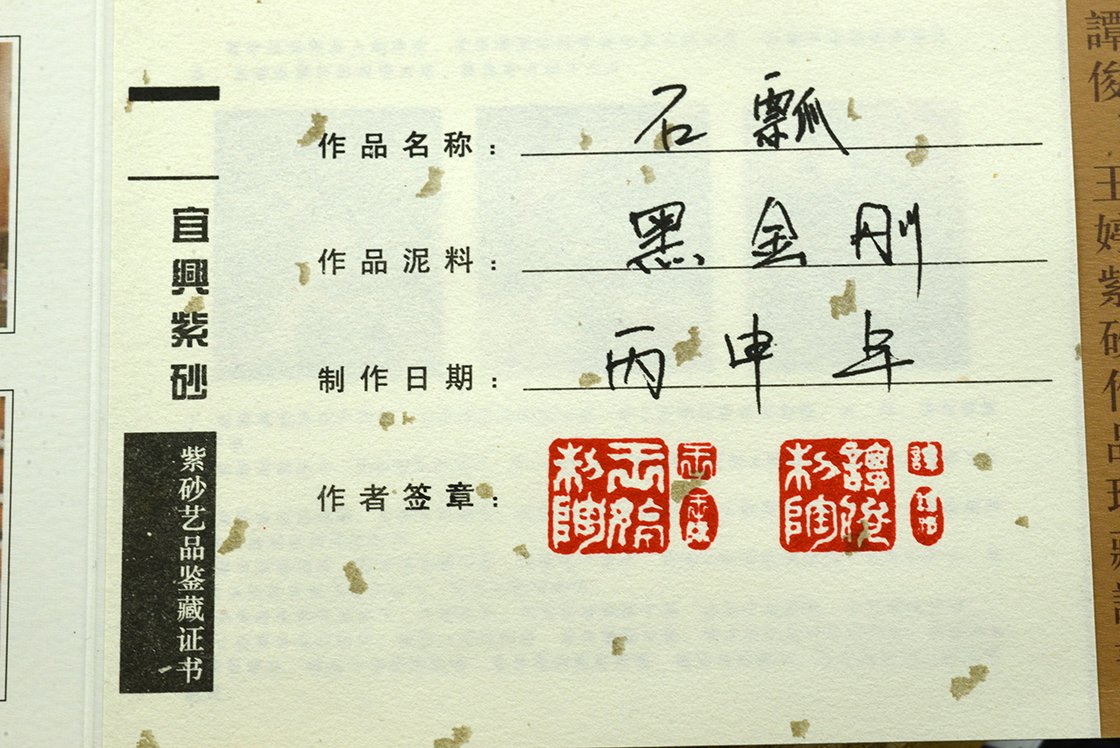 宜興紫砂
紫砂艺品鉴藏证书
作品名称：石瓢
作品泥料：黑金刚
制作日期：丙申年
作者签章：
王婷制陶
譚俊制陶
譚俊 王婷紫砂作品珍藏證